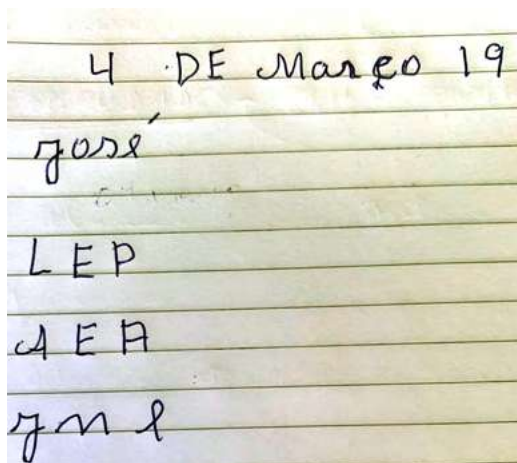 4 DE Março 19
José
LEP
AEA